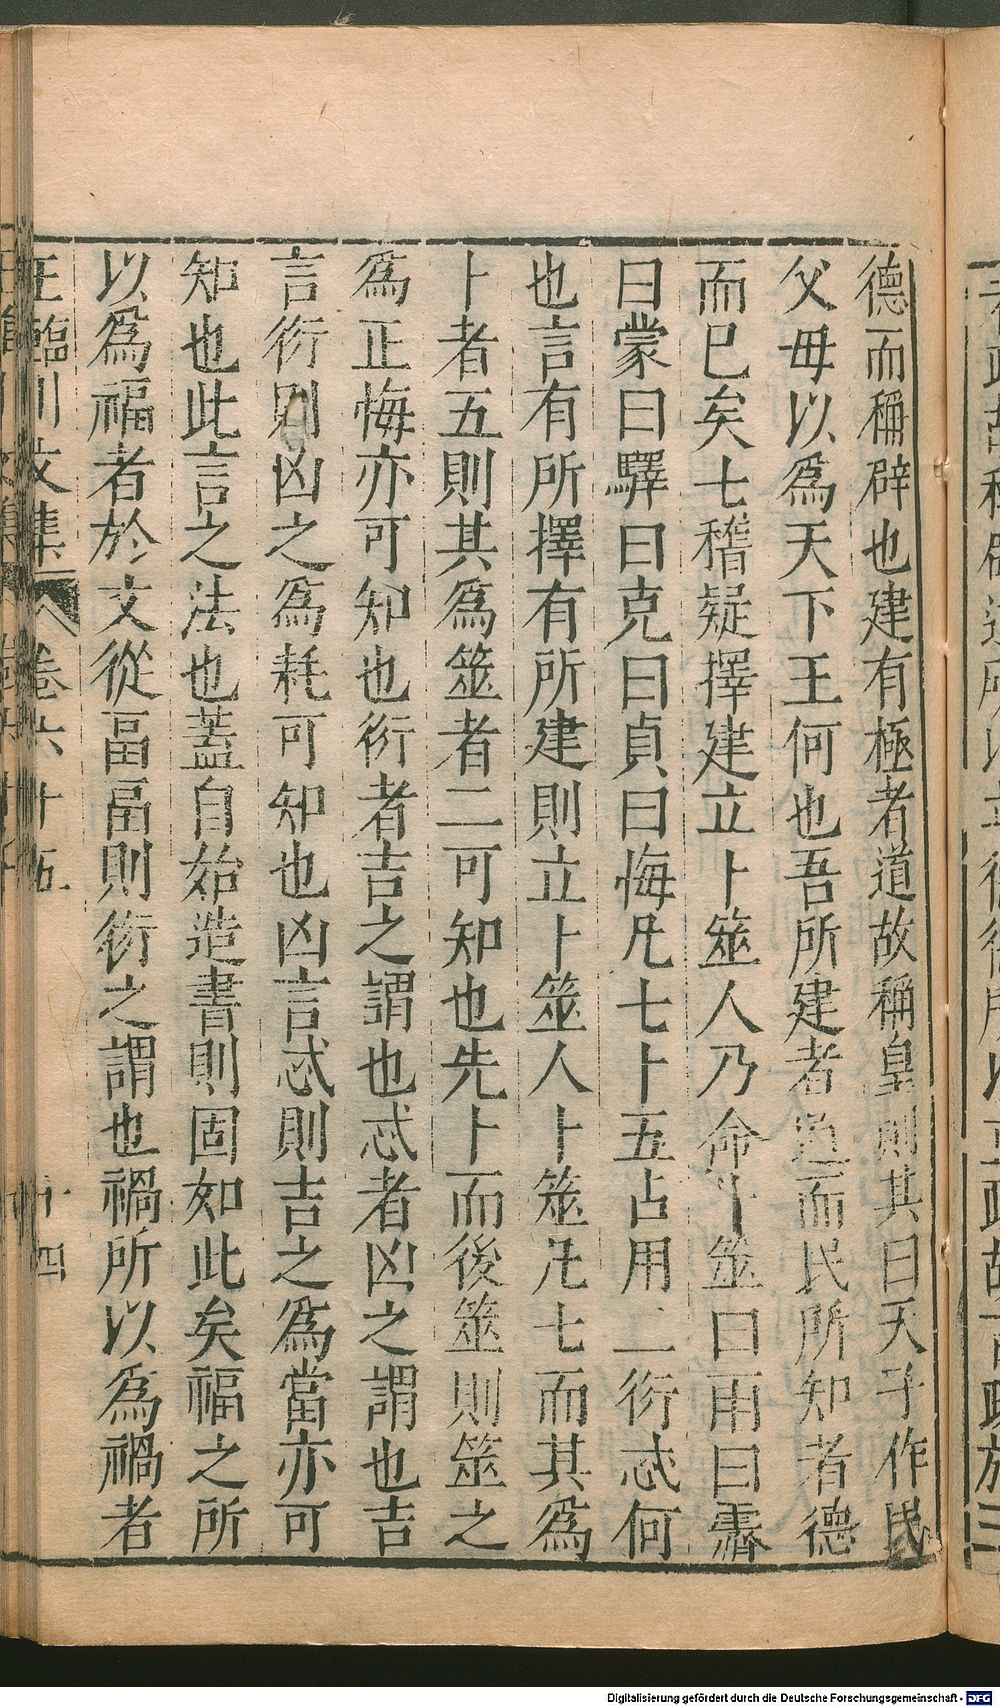 德而稱辟也建有極者道故稱皇則其曰天子作民
父母以爲天下王何也吾所建者道而民所知者德
而巳矣七稽疑擇建立卜筮人乃命卜筮曰雨曰霽
曰蒙曰驛曰克曰貞曰悔凡七卜五占用二衍忒何
也言有所擇有所建則立卜筮人卜筮凡七而其爲
卜者五則其爲筮者二可知也先卜而後筮則筮之
爲正悔亦可知也衍者吉之謂也忒者凶之謂也吉
言衍則凶之爲耗可知也凶言忒則吉之爲當亦可
知也此言之法也蓋自始造書則固如此矣福之所
以爲福者於文從畐畐則衍之謂也禍所以爲禍者
王臨川文集 卷六十五 十四
Digitalisierung gefördert durch die Deutsche Forschungsgemeinschaft - DFG